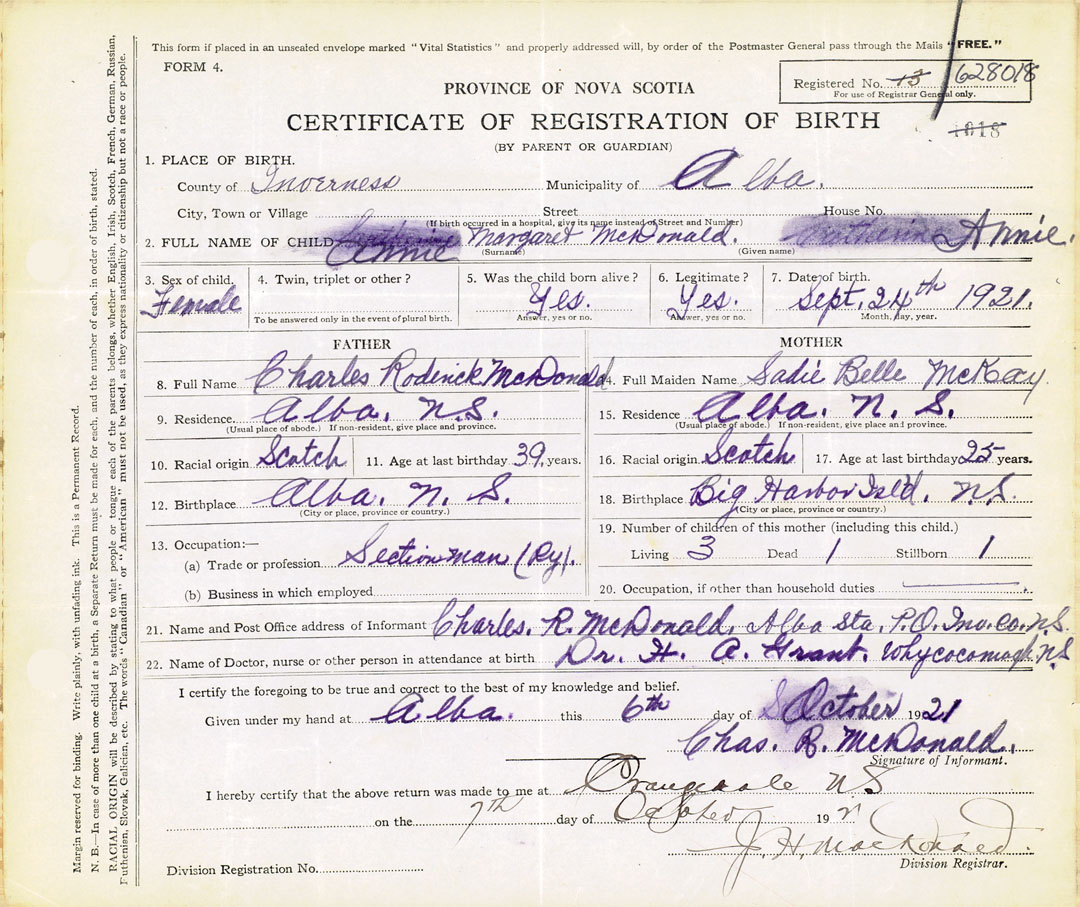 This form if placed in an unsealed envelope marked "Vital Statistics" and properly addressed will, by order of the Postmaster General pass through the Mails "FREE."
FORM 4.
Registered No. 13 628018
For use of Registrar General only.
PROVINCE OF NOVA SCOTIA
CERTIFICATE OF REGISTRATION OF BIRTH
1018
(BY PARENT OR GUARDIAN)
1. PLACE OF BIRTH.
County of Inverness Municipality of Alba.
City, Town or Village Street House No.
(If birth occurred in a hospital, give its name instead of Street and Number)
2. FULL NAME OF CHILD Annie Margaret McDonald. Catherine Annie.
(Surname) (Given name)
3. Sex of child. 4. Twin, triplet or other? 5. Was the child born alive? 6. Legitimate? 7. Date of birth.
Female Yes. Yes. Sept. 24th 1921.
To be answered only in the event of plural birth. Answer, yes or no. Answer, yes or no. Month, day, year.
FATHER MOTHER
8. Full Name Charles Roderick McDonald 14. Full Maiden Name Sadie Belle McKay
9. Residence Alba. N.S. 15. Residence Alba. N. S.
(Usual place of abode.) If non-resident, give place and province. (Usual place of abode.) If non-resident, give place and province.
10. Racial origin Scotch 11. Age at last birthday 39 years. 16. Racial origin Scotch 17. Age at last birthday 25 years.
12. Birthplace Alba. N. S. 18. Birthplace Big Harbor Isl'd. N.S.
(City or place, province or country.) (City or place, province or country.)
13. Occupation:— 19. Number of children of this mother (including this child.)
(a) Trade or profession Sectionman (Ry). Living 3 Dead 1 Stillborn 1
(b) Business in which employed 20. Occupation, if other than household duties
21. Name and Post Office address of Informant Charles. R. McDonald. Alba Sta. P.O. Inv. Co. N.S.
22. Name of Doctor, nurse or other person in attendance at birth Dr. H. A. Grant. Whycocomagh. N.S
I certify the foregoing to be true and correct to the best of my knowledge and belief.
Given under my hand at Alba. this 6th day of October 1921
Chas. R. McDonald.
Signature of Informant.
I hereby certify that the above return was made to me at Orangedale NS
on the 7th day of October 192
J. H. MacDonald
Division Registrar.
Division Registration No.
Margin reserved for binding. Write plainly, with unfading ink. This is a Permanent Record.
N. B.—In case of more than one child at a birth, a Separate Return must be made for each, and the number of each, in order of birth, stated.
RACIAL ORIGIN will be described by stating to what people or tongue each of the parents belongs, whether English, Irish, Scotch, French, German, Russian,
Ruthenian, Slovak, Galician, etc. The words "Canadian" or "American" must not be used, as they express nationality or citizenship but not a race or people.